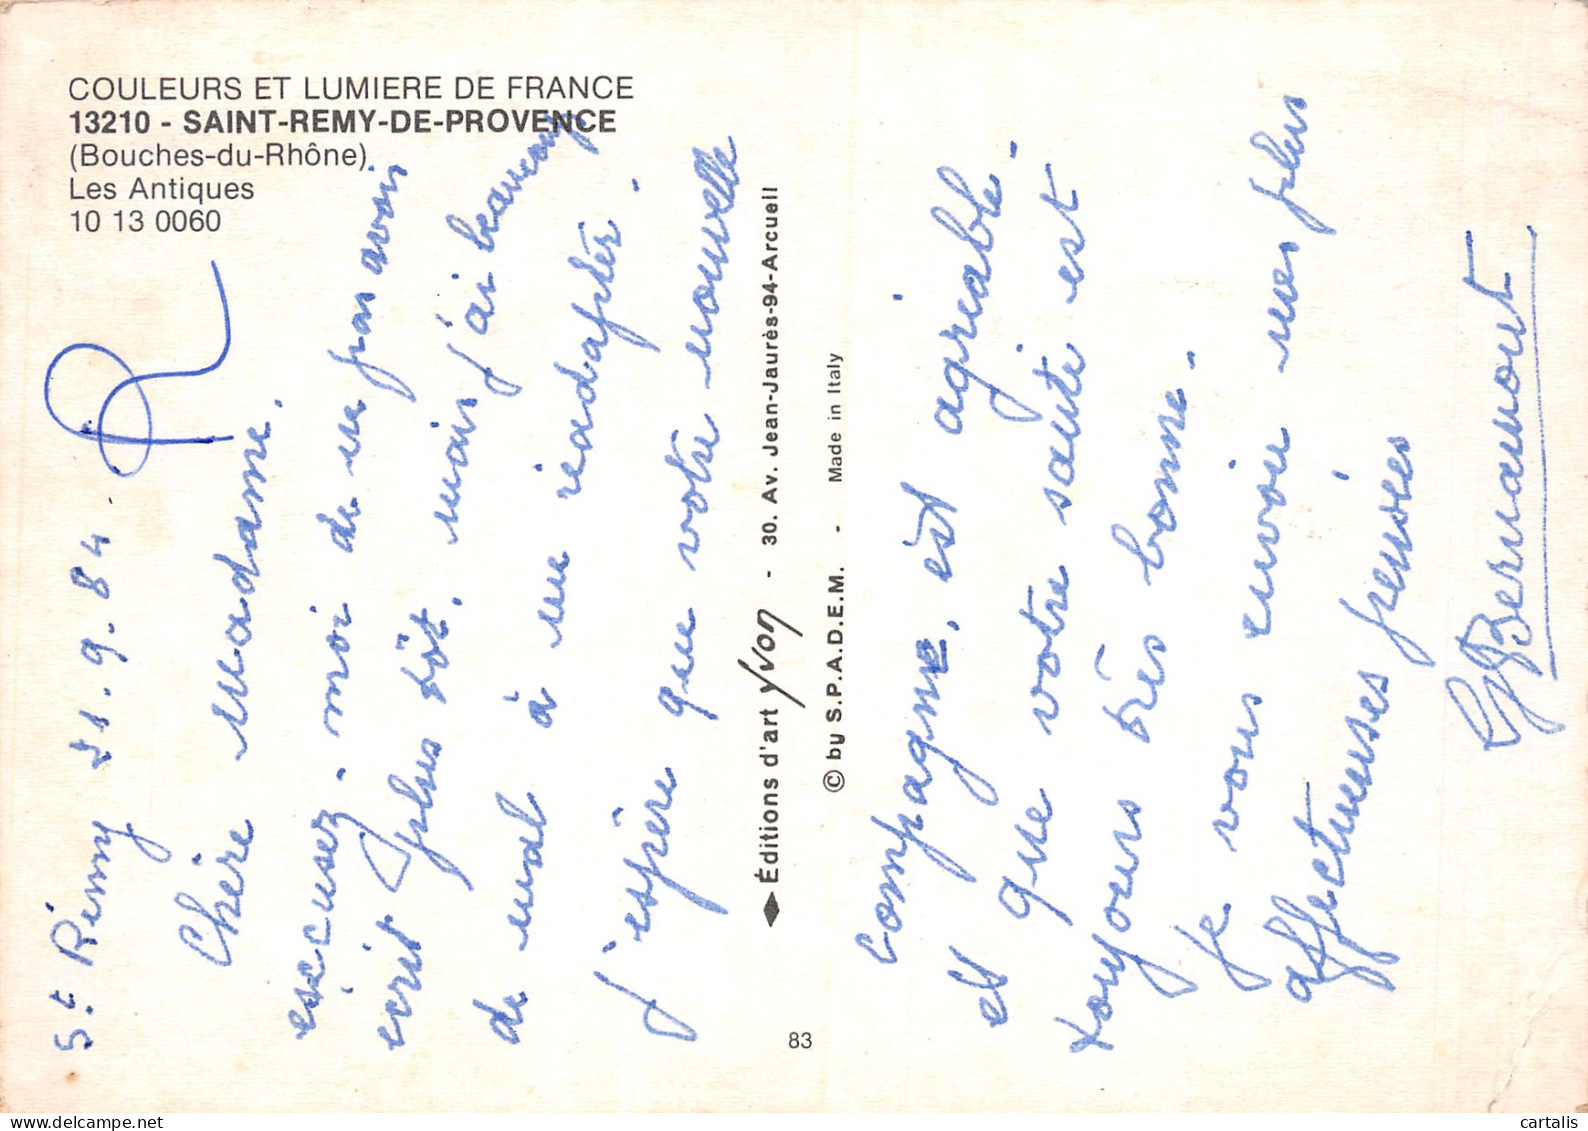 COULEURS ET LUMIERE DE FRANCE
13210 - SAINT-REMY-DE-PROVENCE
(Bouches-du-Rhône)
Les Antiques
10 13 0060
St Rémy 21.9.84.
Chère madame,
escusez-moi de ne pas avoir
ecrit plus tôt, mais j'ai beaucoup
de mal à me réadaptér.
j'espère que votre nouvelle
◆ Éditions d'art yvon - 30. Av. Jean-Jaurès-94-Arcueil
© by S.P.A.D.E.M. - Made in Italy
83
compagne, est agréable.
et que votre santé est
toujours très bonne.
je vous envoie mes plus
affectueuses pensées
cartalis